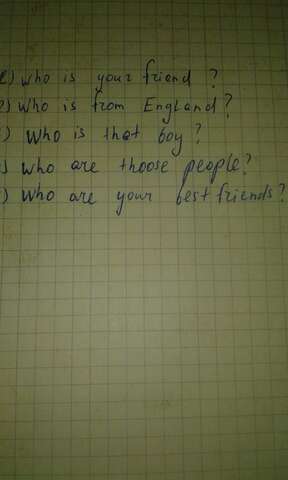 ) Who is your friend ?
) Who is from England ?
) Who is that boy ?
) Who are thoose people?
) Who are your best friends?